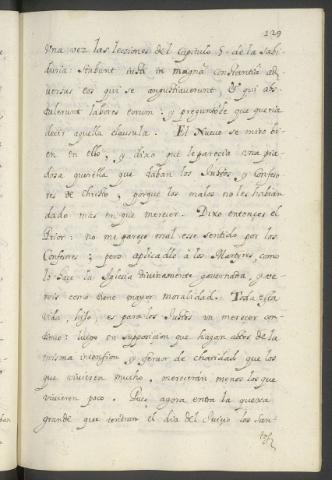 229
Una vez las lecciones del Capitulo 5 de la Sabi-
duria: Stabunt iusti in magna constantia ad
versus eos qui se angustiaverunt, & qui abs-
tulerunt labores eorum: y preguntóle que queria
decir aquella clausula. El Nuevo se miro bi-
en en ello, y dixo que le parecia una pia-
dosa querella que daban los Justos, y Confeso
res de Christo, porque los malos no les habian
dado mas en que merecer. Dixo entonçes el
Prior: no me parece mal ese sentido por los
Confesores; pero aplicadlo à los Martyres como
lo hace la Iglesia divinamente governada, y ve-
reis como tiene mayor moralidad. Toda esta
vida, hijo, es para los Justos un merecer con-
tinuo: luego en supposicion que hagan actos de la
misma intension y fervor de charidad que los
que vivieron mucho, mereceràn menos los que
vivieron poco. Pues agora entra la quexa
grande que tendran el dia del Juicio los San-
tos,